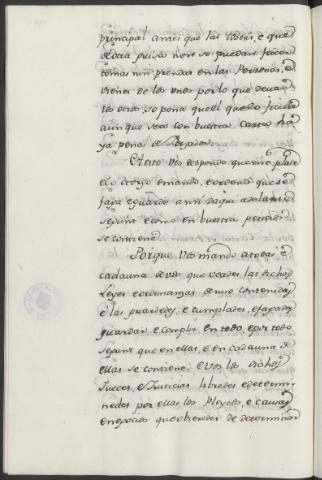 principal antes que las
se pueda
tomar nin prendar en las Personas, e
vienes de los unos por lo que devan
los otros, so pena quel que lo
aunque sea con nuestra carta
ya pena de
A esto vos respondo que me place
e lo otorgo e mando, e ordeno que se
faga e guarde
segunt e como en vuestra peticion
se contiene
Porque vos mando a todos, e
cada uno de vos que veades las dichas
Leyes e ordenanzas de suso contenidas
e las guardedes, e cumplades, e fagades
guardar, e complir en todo, e por todo
segunt que en ellas, e en cada una de
ellas se contiene e vos los dichos
Jueces, e Justicias libredes e determi-
nedes por ellas los Pleytos, e causas
e negocios que obieredes de determinar